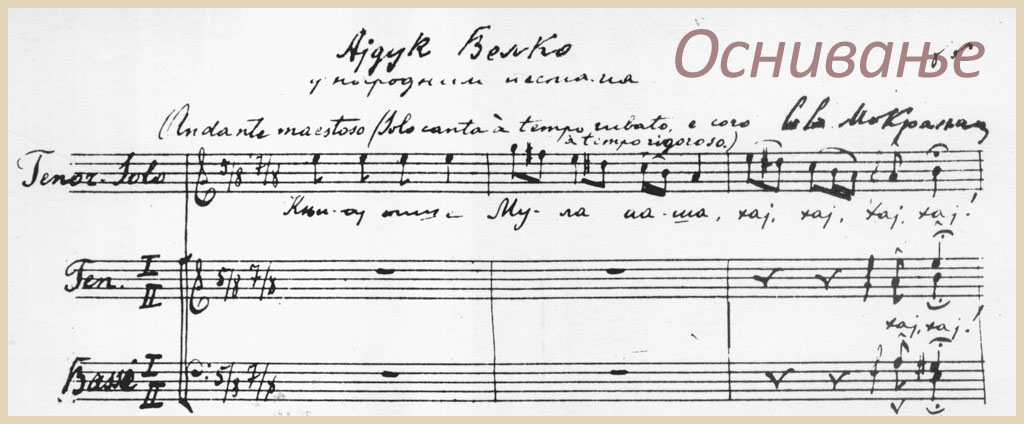 Ајдук Вељко
у народним песмама
Оснивање
Andante maestoso (Solo canta à tempo rubato, e coro
à tempo rigoroso.)
Tenor-Solo 5/8 7/8
Књи-гу пише Му-ла па-ша, хај, хај, хај, хај!
Ten. I II 5/8 7/8
хај, хај!
Bassi I II 5/8 7/8